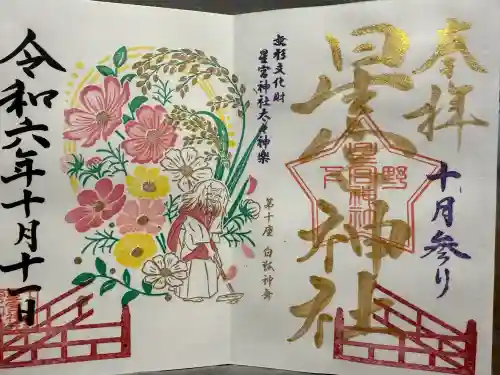 奉拝
星宮神社
十月参り
下野
星宮神社
無形文化財
星宮神社太々神楽
第十座 白狐神舞
令和六年十月十一日